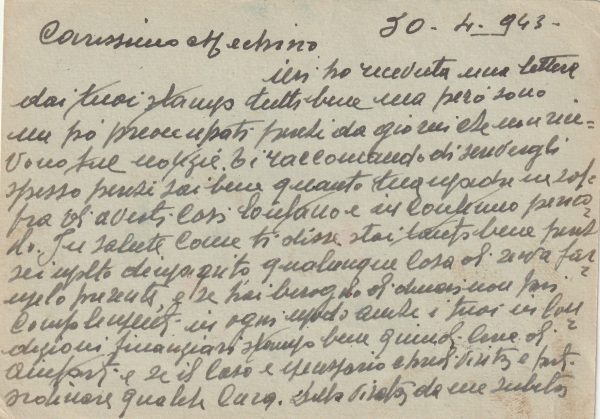 30-4-943-
Carissimo Mechino
ieri ho ricevuta una lettera
dai tuoi stanno tutti bene ma però sono
un pò preoccupati perchè da giorni che non rice-
vono tue notizie, ti raccomando di scrivergli
spesso perchè sai bene quanto tua madre ne sof-
fra di averti così lontano e in continuo perico-
lo. In salute come ti disse stai bene però
sei molto dimagrito qualunque cosa di serva far-
melo presente, e se hai bisogno di denari non fare
complimenti in ogni modo anche i tuoi in con-
dizioni finanziarie stanno bene quindi cerca di
e se il caso è necessario chiedi visita e fatti
ordinare qualche cura. subito